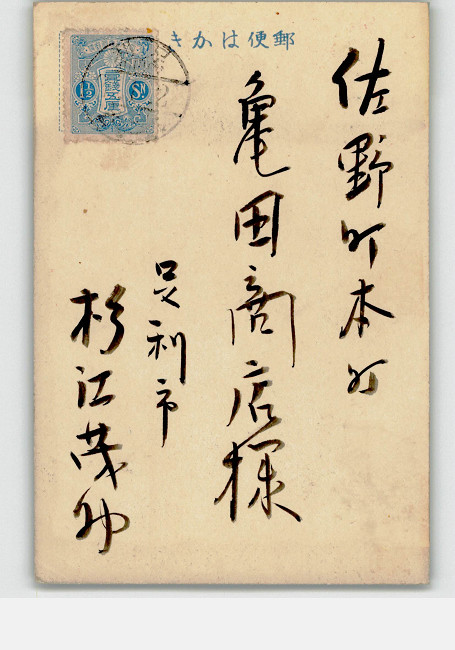 郵便はかき
佐野町本町
亀田商店様
足利市
杉江茂助
壹錢五厘
1½ Sn